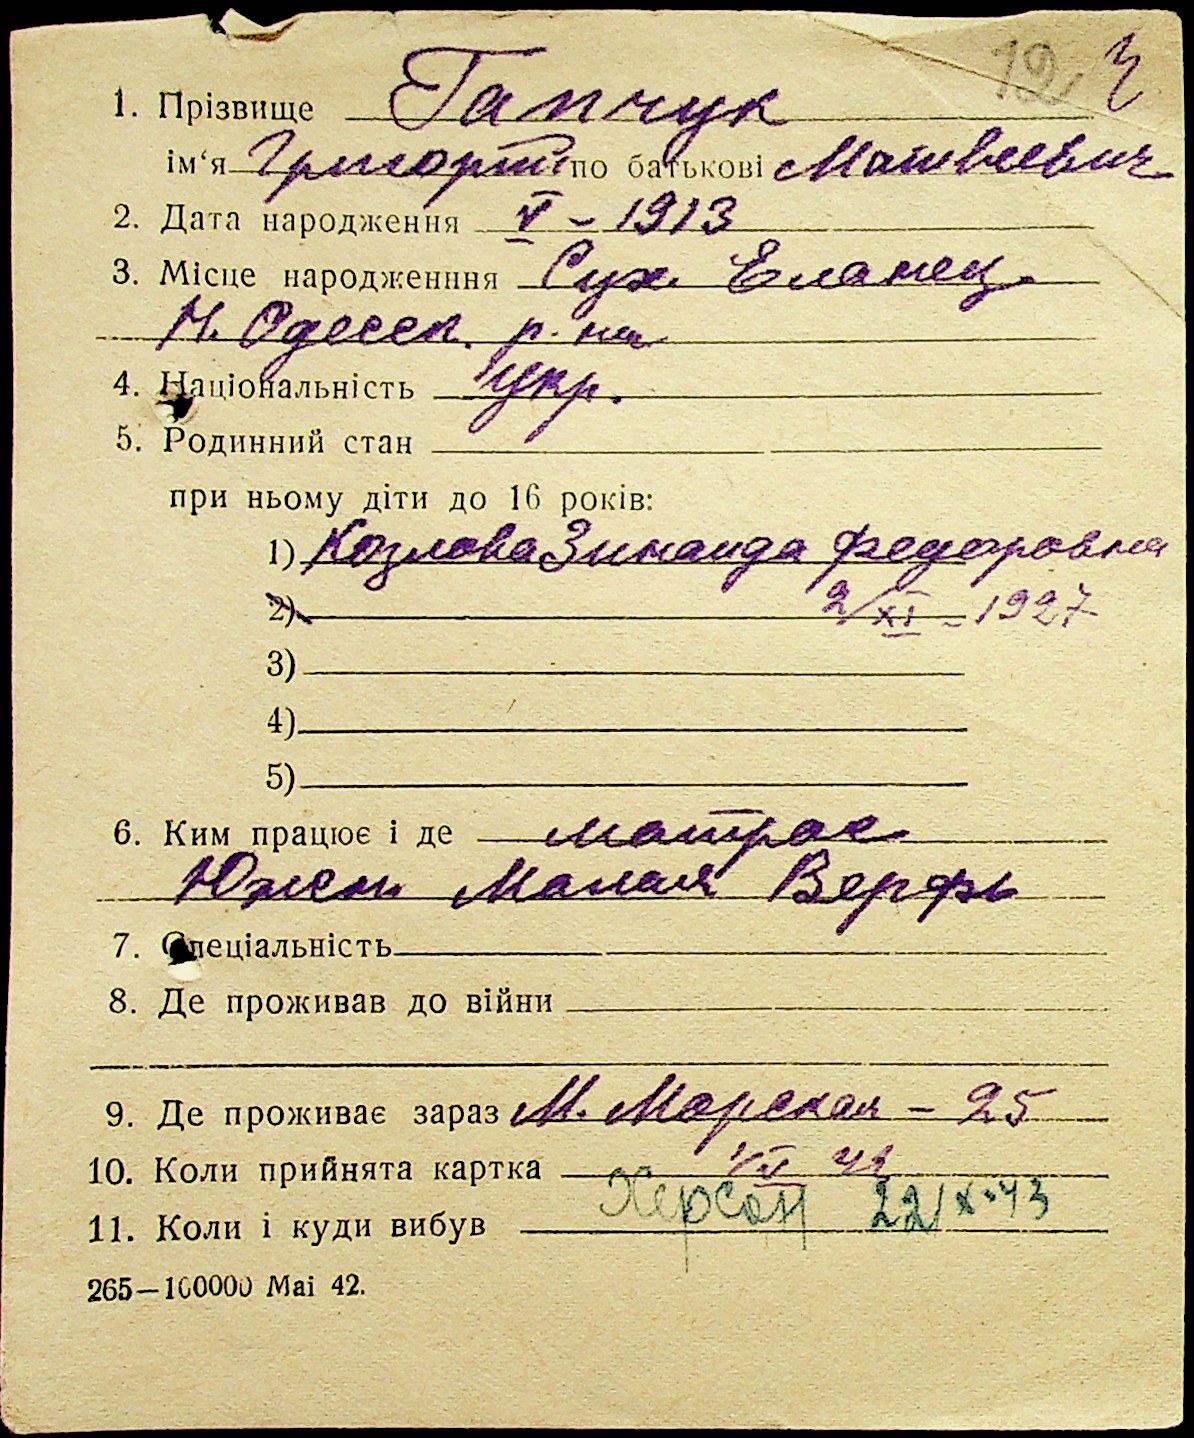 12 Ч
1. Прізвище Гапчук
ім‘я Григорий по батькові Матвеевич
2. Дата народження V – 1913
3. Місце народженння Сух. Еланец.
Н. Одесск. р-на
4. Національність укр.
5. Родинний стан
при ньому діти до 16 років:
1) Козлова Зинаида Федоровна
2) 2/XI – 1927
3)
4)
5)
6. Ким працює і де матрос
Южн. Малая Верфь
7. Спеціальність
8. Де проживав до війни
9. Де проживає зараз М. Морская – 25
10. Коли прийнята картка
11. Коли і куди вибув Херсон 22/X-43
265—100000 Mai 42.